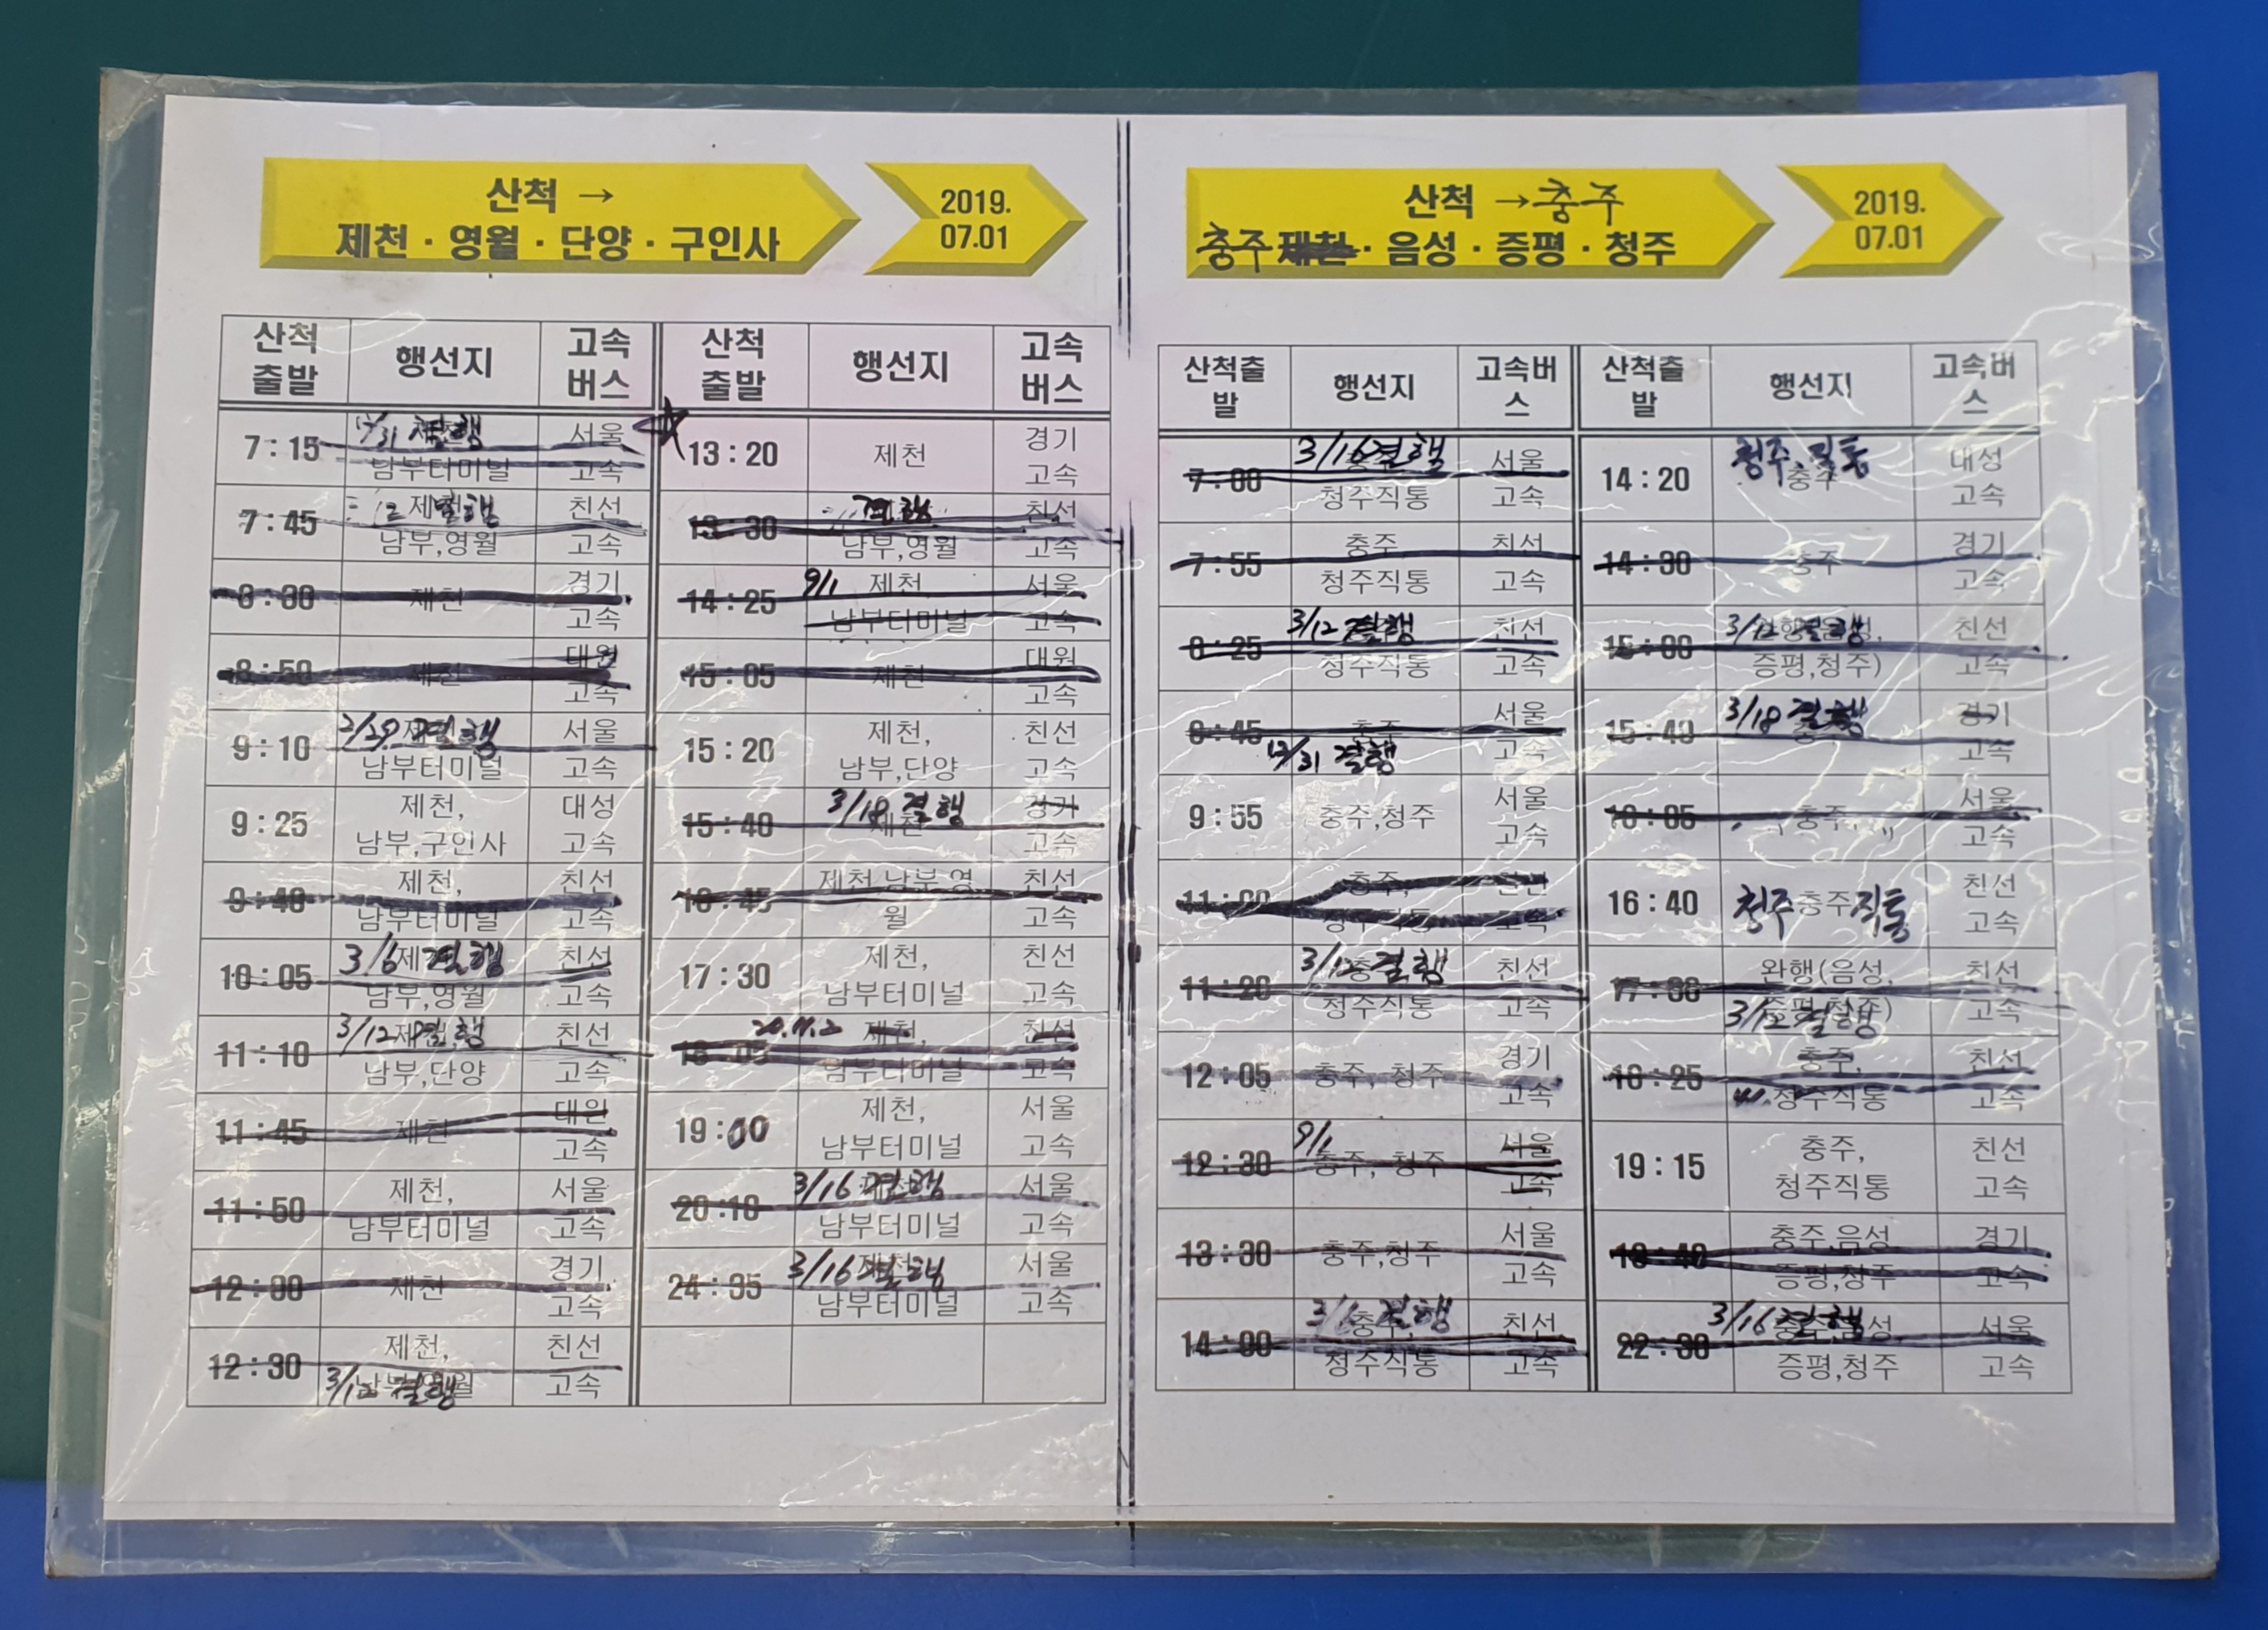 산척 →
제천 · 영월 · 단양 · 구인사
2019.
07.01
산척 출발 행선지 고속 버스 산척 출발 행선지 고속 버스
7:15 12/31 결행 남부터미널 서울 고속
7:45 제천 결행 남부,영월 친선 고속
8:30 제천 경기 고속
8:50 제천 대원 고속
9:10 결행 남부터미널 서울 고속
9:25 제천, 남부,구인사 대성 고속
9:40 제천, 남부터미널 친선 고속
10:05 3/6 결행 남부,영월 친선 고속
11:10 3/12 결행 남부,단양 친선 고속
11:45 제천 대원 고속
11:50 제천, 남부터미널 서울 고속
12:00 제천 경기 고속
12:30 제천, 3/12 결행 친선 고속
13:20 제천 경기 고속
13:30 결행 남부,영월 친선 고속
14:25 9/1 제천 남부터미널 서울 고속
15:05 제천 대원 고속
15:20 제천, 남부,단양 친선 고속
15:40 3/18 결행 제천 경기 고속
16:45 제천,남부,영월 친선 고속
17:30 제천, 남부터미널 친선 고속
20.11.2 제천, 남부터미널 친선 고속
19:00 제천, 남부터미널 서울 고속
20:10 3/16 결행 남부터미널 서울 고속
24:35 3/16 결행 남부터미널 서울 고속
산척 → 충주
충주 제천 · 음성 · 증평 · 청주
2019.
07.01
산척출발 행선지 고속버스 산척출발 행선지 고속버스
7:00 3/16 결행 청주직통 서울 고속
7:55 충주 청주직통 친선 고속
8:25 3/12 결행 청주직통 친선 고속
8:45 충주 12/31 결행 서울 고속
9:55 충주,청주 서울 고속
11:00 충주, 청주직통 친선 고속
11:20 3/12 결행 청주직통 친선 고속
12:05 충주, 청주 경기 고속
12:30 9/1 충주, 청주 서울 고속
13:30 충주,청주 서울 고속
14:00 결행 충주, 청주직통 친선 고속
14:20 청주,직통 충주 대성 고속
14:30 충주 경기 고속
15:00 3/12 결행 증평,청주) 친선 고속
15:40 3/18 결행 경기 고속
16:05 충주, 서울 고속
16:40 청주 충주 직통 친선 고속
17:30 완행(음성, 증평,청주) 3/12 결행 친선 고속
18:25 충주, 청주직통 친선 고속
19:15 충주, 청주직통 친선 고속
19:40 충주,음성 증평,청주 경기 고속
22:30 3/16 결행 충주,음성, 증평,청주 서울 고속